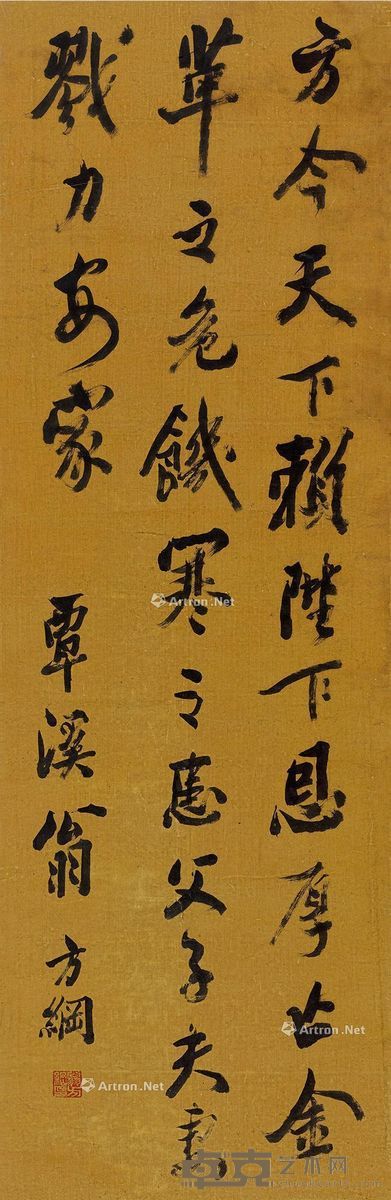 方今天下賴陛下恩厚亡金
革之危饑寒之患父子夫妻
戮力安家
覃溪翁方綱
Artron.Net
Artron.Net
Artron.Net
Artron.Net
卓克艺术网